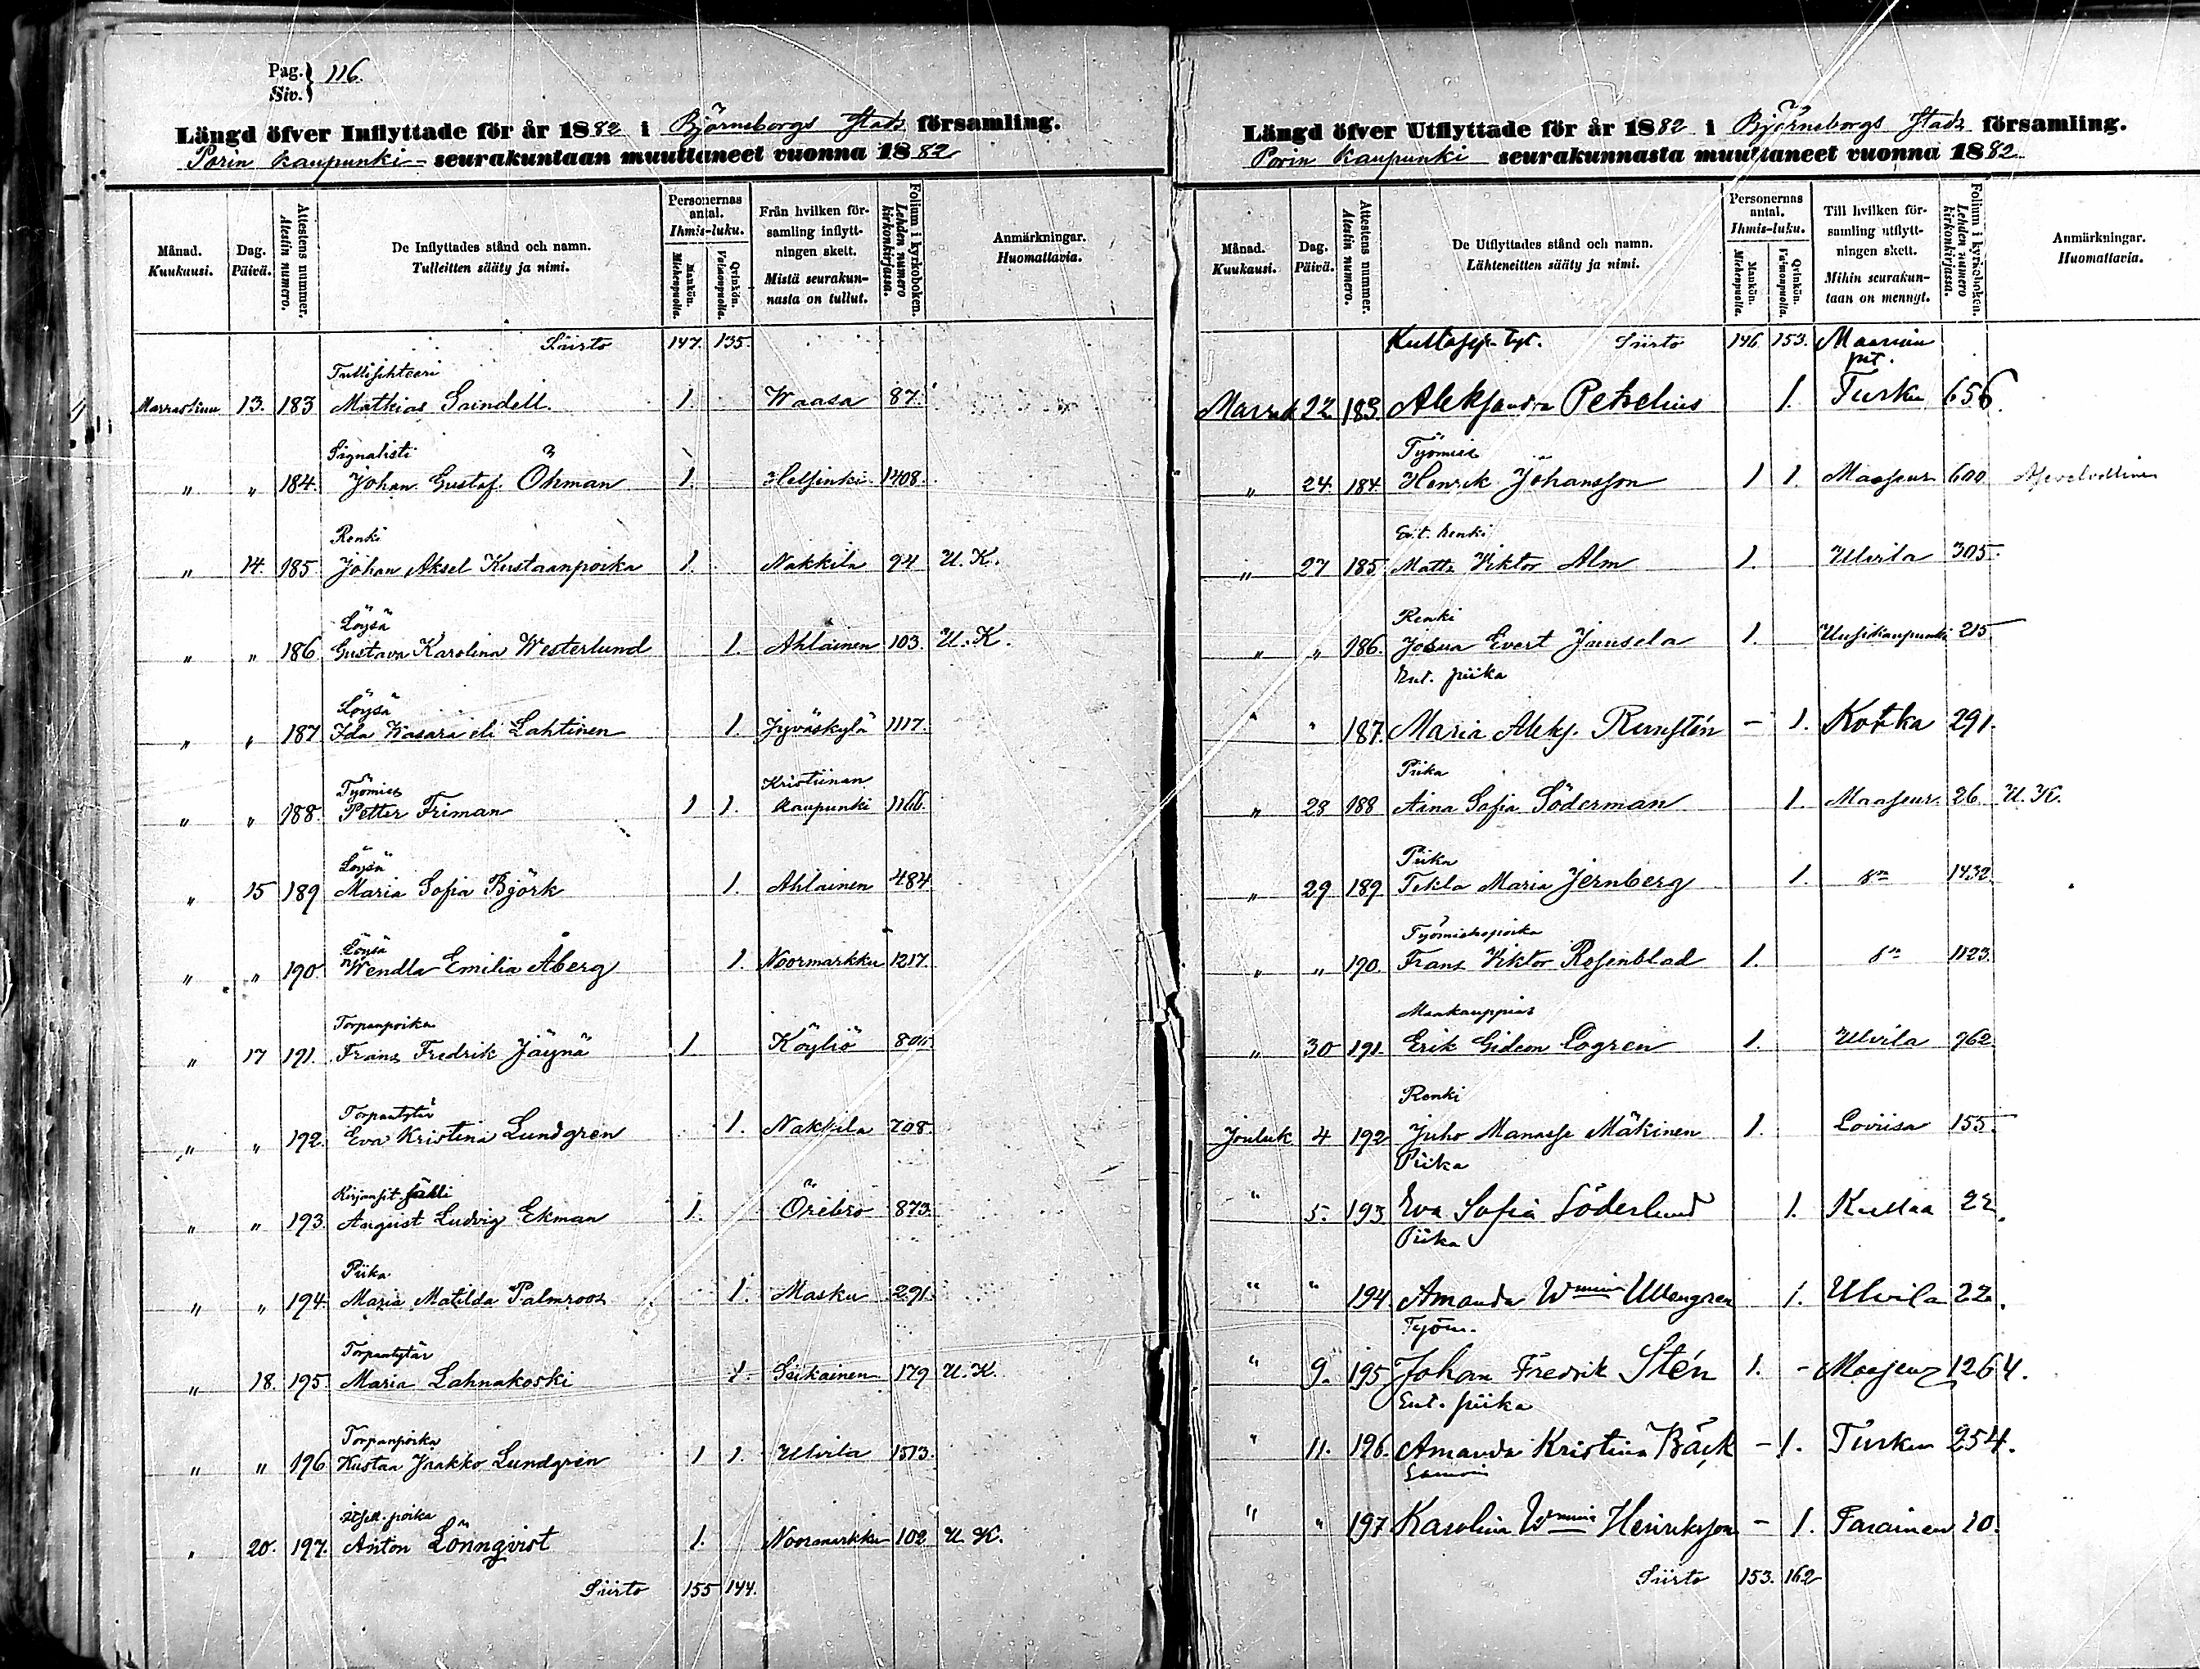 Pag. } 116.
Siv. }
Längd öfver Inflyttade för år 1882 i Björneborgs Stads församling.
Porin kaupunki seurakuntaan muuttaneet vuonna 1882
Månad. Kuukausi.
Dag. Päivä.
Attestens nummer. Atestin numero.
De Inflyttades stånd och namn. Tulleitten sääty ja nimi.
Personernas antal. Ihmis-luku.
Mankön. Miehenpuolia.
Qvinkön. Vaimonpuolia.
Från hvilken församling inflyttningen skett. Mistä seurakunnasta on tullut.
Folium i kyrkoboken. Lehden numero kirkonkirjassa.
Anmärkningar. Huomattavia.
Siirto 147. 135.
Tullisihteeri
Marraskuu 13. 183 Mathias Saindell. 1. Waasa 87.
Signalisti
" " 184. Johan Gustaf Öhman 1. Helsinki 1408.
Renki
" 14. 185. Johan Aksel Kustaanpoika 1. Nakkila 94 U. K.
Löysä
" " 186. Gustava Karolina Westerlund 1. Ahlainen 103. U. K.
Löysä
" " 187 Ida Kasara eli Lahtinen 1. Jyväskylä 1117.
Työmies Kristiinan
" " 188. Petter Friman 1 1. kaupunki 1166.
Löysä
" 15 189 Maria Sofia Björk 1. Ahlainen 484
Löysä
" " 190. Wendla Emilia Åberg 1. Noormarkku 1217.
Torpanpoika
" 17 191. Frans Fredrik Jäynä 1 Köyliö
Torpantytär
" " 192. Eva Kristina Lundgren 1. Nakkila 708.
" " 193. August Ludvig Ekman 1. Örebro 873.
Piika
" " 194. Maria Matilda Palmroos 1. Masku 291.
Torpantytär
" 18. 195. Maria Lahnakoski 1. Siikainen 179 U. K.
Torpanpoika
" " 196 Kustaa Jaakko Lundgrén 1 1. Ulvila 1513.
Itsell. poika
" 20. 197. Anton Lönnqvist 1. Noormarkku 102 U. K.
Siirto 155 144.
Längd öfver Utflyttade för år 1882 i Björneborgs Stads församling.
Porin kaupunki seurakunnasta muuttaneet vuonna 1882
Månad. Kuukausi.
Dag. Päivä.
Attestens nummer. Atestin numero.
De Utflyttades stånd och namn. Lähteneitten sääty ja nimi.
Personernas antal. Ihmis-luku.
Mankön. Miehenpuolia.
Qvinkön. Vaimonpuolia.
Till hvilken församling utflyttningen skett. Mihin seurakuntaan on mennyt.
Folium i kyrkoboken. Lehden numero kirkonkirjassa.
Anmärkningar. Huomattavia.
Kultasep. tyt. Siirto 146 153. Maarian
pit.
Marrask 22 183. Aleksandra Petrelius 1. Turku 656.
Työmies
" 24. 184. Henrik Johansson 1 1. Maaseur. 600
Ent. renki
" 27 185. Matts Viktor Alm 1. Ulvila 305.
Renki
" " 186. Josua Evert Jausela 1. Uusikaupunki 215
Ent. piika
" " 187. Maria Aleks. Runstén – 1. Kotka 291.
Piika
" 28 188 Aina Sofia Söderman 1. Maaseur. 26 U. K.
Piika
" 29 189. Tekla Maria Jernberg 1. 1432.
Työmiehepoika
" " 190. Frans Viktor Rosenblad 1. 1123.
Maakauppias
" 30 191. Erik Gideon Logren 1. Ulvila 962.
Renki
Jouluk 4 192 Juho Manasse Mäkinen 1. Loviisa 155.
Piika
" 5. 193 Eva Sofia Söderlund 1. Kullaa 22.
Piika
" " 194. Amanda Wmina Ullengren 1. Ulvila 22.
Työm.
" 9. 195 Johan Fredrik Stén 1. – Maaseur 1264.
Ent. piika
" 11. 196. Amanda Kristina Bäck – 1. Turku 254.
" " 197 Karolina Wmina Henriksson – 1. Parainen 10.
Siirto 153. 162